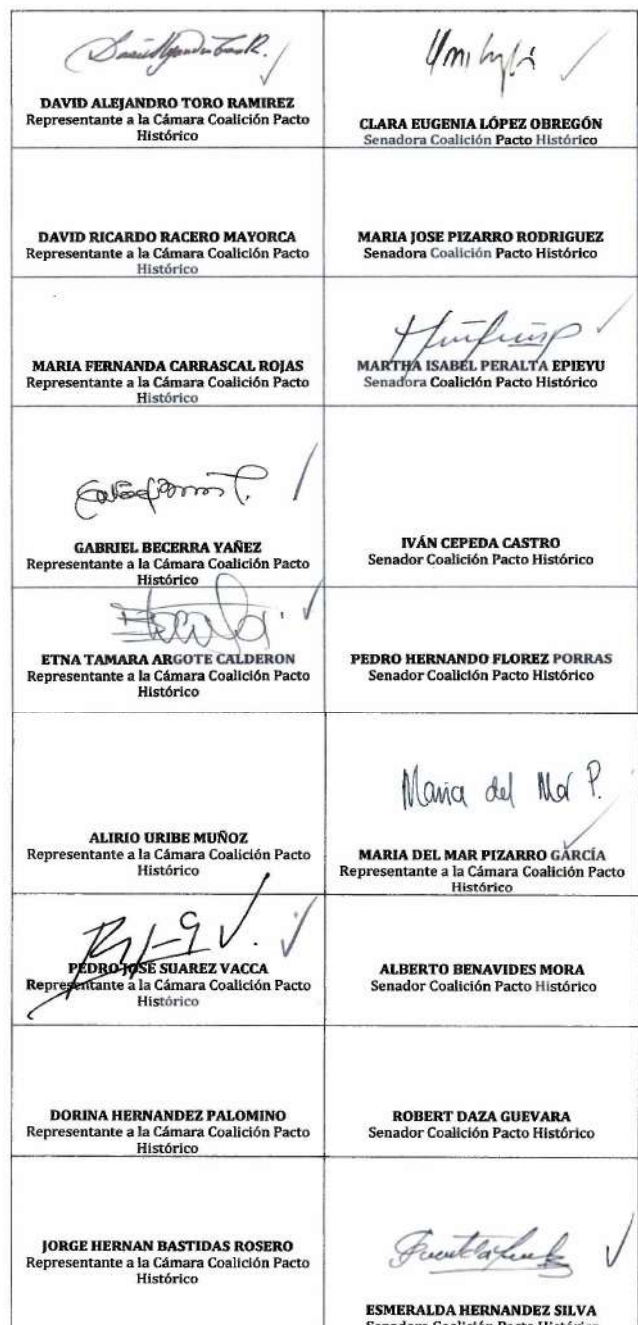 DAVID ALEJANDRO TORO RAMIREZ
Representante a la Cámara Coalición Pacto
Histórico
CLARA EUGENIA LÓPEZ OBREGÓN
Senadora Coalición Pacto Histórico
DAVID RICARDO RACERO MAYORCA
Representante a la Cámara Coalición Pacto
Histórico
MARIA JOSE PIZARRO RODRIGUEZ
Senadora Coalición Pacto Histórico
MARIA FERNANDA CARRASCAL ROJAS
Representante a la Cámara Coalición Pacto
Histórico
MARTHA ISABEL PERALTA EPIEYU
Senadora Coalición Pacto Histórico
GABRIEL BECERRA YAÑEZ
Representante a la Cámara Coalición Pacto
Histórico
IVÁN CEPEDA CASTRO
Senador Coalición Pacto Histórico
ETNA TAMARA ARGOTE CALDERON
Representante a la Cámara Coalición Pacto
Histórico
PEDRO HERNANDO FLOREZ PORRAS
Senador Coalición Pacto Histórico
ALIRIO URIBE MUÑOZ
Representante a la Cámara Coalición Pacto
Histórico
Maria del Mar P.
MARIA DEL MAR PIZARRO GARCÍA
Representante a la Cámara Coalición Pacto
Histórico
PEDRO JOSE SUAREZ VACCA
Representante a la Cámara Coalición Pacto
Histórico
ALBERTO BENAVIDES MORA
Senador Coalición Pacto Histórico
DORINA HERNANDEZ PALOMINO
Representante a la Cámara Coalición Pacto
Histórico
ROBERT DAZA GUEVARA
Senador Coalición Pacto Histórico
JORGE HERNAN BASTIDAS ROSERO
Representante a la Cámara Coalición Pacto
Histórico
ESMERALDA HERNANDEZ SILVA
Senadora Coalición Pacto Histórico